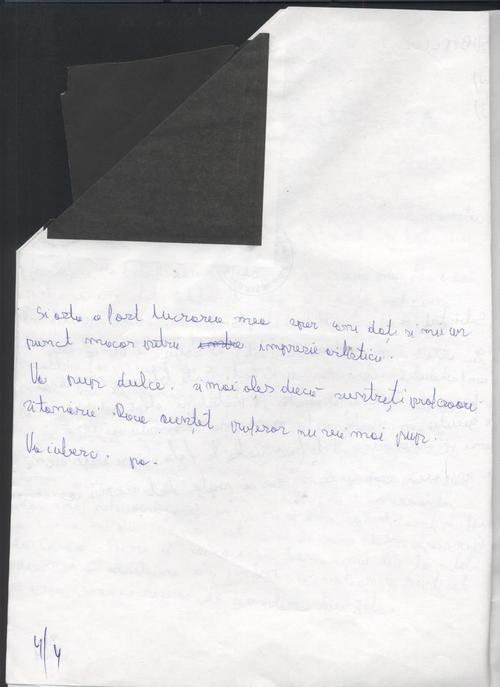 Și asta a fost lucrarea mea sper cămi daț și mii un
punct macar pntru impresie artistica.
Va pup dulce. si mai ales dacă suntreți profesoară
si tanără. Daca suntêt profesor nu vă mai pup.
Va iubesc. pa.
4/4